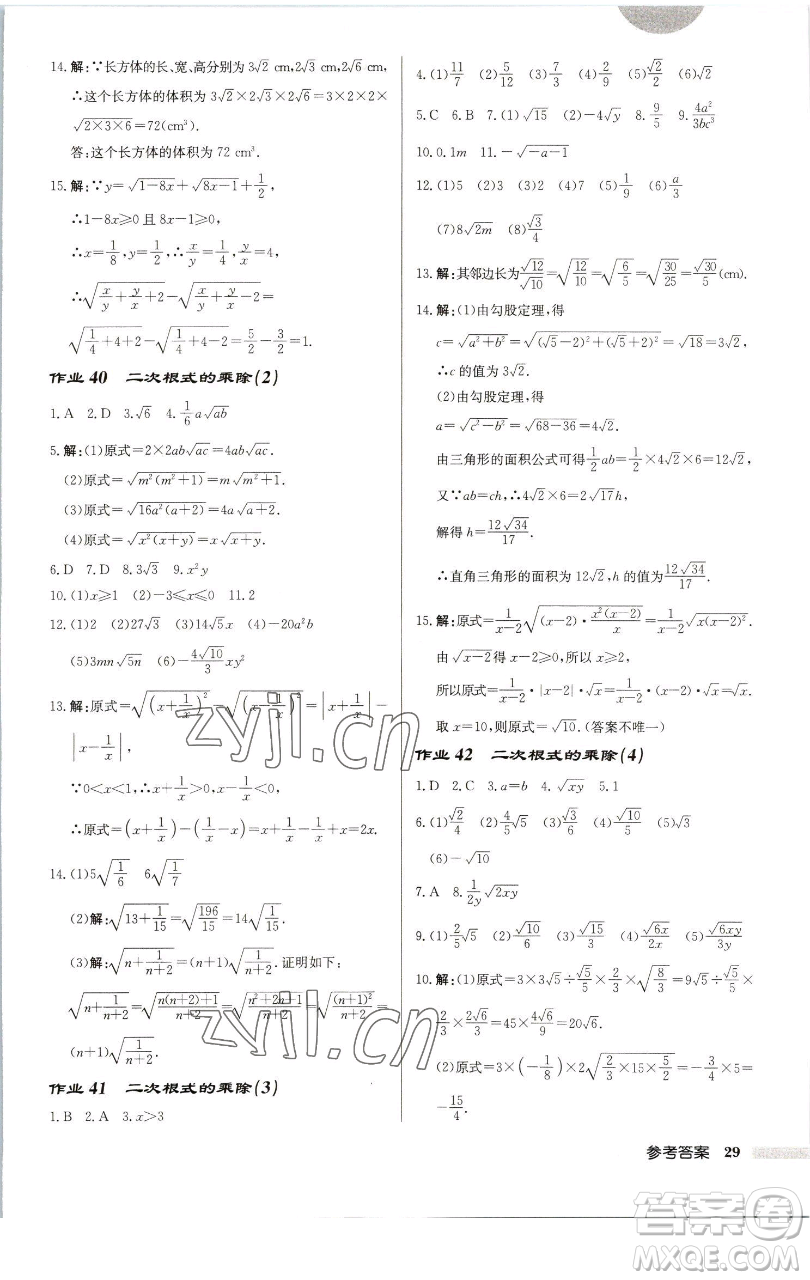 14.解:∵长方体的长、宽、高分别为3√2 cm,2√3 cm,2√6 cm,
∴这个长方体的体积为3√2×2√3×2√6=3×2×2×
√(2×3×6)=72(cm³).
答:这个长方体的体积为72 cm³.
15.解:∵y=√(1-8x)+√(8x-1)+1/2,
∴1-8x≥0且8x-1≥0,
∴x=1/8,y=1/2,∴x/y=1/4,y/x=4,
∴√(x/y+y/x+2)-√(x/y+y/x-2)=
√(1/4+4+2)-√(1/4+4-2)=5/2-3/2=1.
作业40 二次根式的乘除(2)
1.A 2.D 3.√6 4.1/6 a√ab
5.解:(1)原式=2×2ab√ac=4ab√ac.
(2)原式=√(m²(m²+1))=m√(m²+1).
(3)原式=√(16a²(a+2))=4a√(a+2).
(4)原式=√(x²(x+y))=x√(x+y).
6.D 7.D 8.3√3 9.x²y
10.(1)x≥1 (2)-3≤x≤0 11.2
12.(1)2 (2)27√3 (3)14√5x (4)-20a²b
(5)3mn√5n (6)-4√10/3 xy²
13.解:原式=√(x+1/x)²-√(x-1/x)²=|x+1/x|-
|x-1/x|,
∵0<x<1,∴1/x>1,∴x-1/x<0,
∴原式=(x+1/x)-(1/x-x)=x+1/x-1/x+x=2x.
14.(1)5√(1/6) 6√(1/7)
(2)解:√(13+1/15)=√(196/15)=14√(1/15).
(3)解:√(n+1/(n+2))=(n+1)√(1/(n+2)).证明如下:
√(n+1/(n+2))=√((n(n+2)+1)/(n+2))=√((n²+2n+1)/(n+2))=√((n+1)²/(n+2))=
(n+1)√(1/(n+2)).
作业41 二次根式的乘除(3)
1.B 2.A 3.x>3
4.(1)11/7 (2)5/12 (3)7/3 (4)2/9 (5)√2/2 (6)√2
5.C 6.B 7.(1)√15 (2)-4√y 8.9/5 9.4a²/3bc³
10.0.1m 11.-√(-a-1)
12.(1)5 (2)3 (3)2 (4)7 (5)1/9 (6)a/3
(7)8√2m (8)√3/4
13.解:其邻边长为√12/√10=√(12/10)=√(6/5)=√(30/25)=√30/5(cm).
14.解:(1)由勾股定理,得
c=√(a²+b²)=√((√5-2)²+(√5+2)²)=√18=3√2,
∴c的值为3√2.
(2)由勾股定理,得
a=√(c²-b²)=√(68-36)=4√2.
由三角形的面积公式可得1/2 ab=1/2×4√2×6=12√2,
又∵ab=ch,∴4√2×6=2√17h,
解得h=12√34/17.
∴直角三角形的面积为12√2,h的值为12√34/17.
15.解:原式=1/(x-2) √((x-2)·x²(x-2)/x)=1/(x-2) √(x(x-2)²).
由√(x-2)得x-2≥0,所以x>0,
所以原式=1/(x-2)·|x-2|·√x=√x.
取x=10,则原式=√10.(答案不唯一)
作业42 二次根式的乘除(4)
1.D 2.C 3.a=b 4.√xy 5.1
6.(1)√2/4 (2)4/5√5 (3)√3/6 (4)√10/5 (5)√3
(6)-√10
7.A 8.1/2y √2xy
9.(1)2/5√5 (2)√10/6 (3)√15/3 (4)√6x/2x (5)√6xy/3y
10.解:(1)原式=3×3√5÷√5/5×2/3×√(8/3)=9√5÷√5/5×
2/3×2√6/3=45×4√6/9=20√6.
(2)原式=3×(-1/8)×2√(2/3×15×5/2)=-3/4×5=
-15/4.
参考答案 29
zyjl.cn
zyjl.cn
答案卷
MXQE.COM